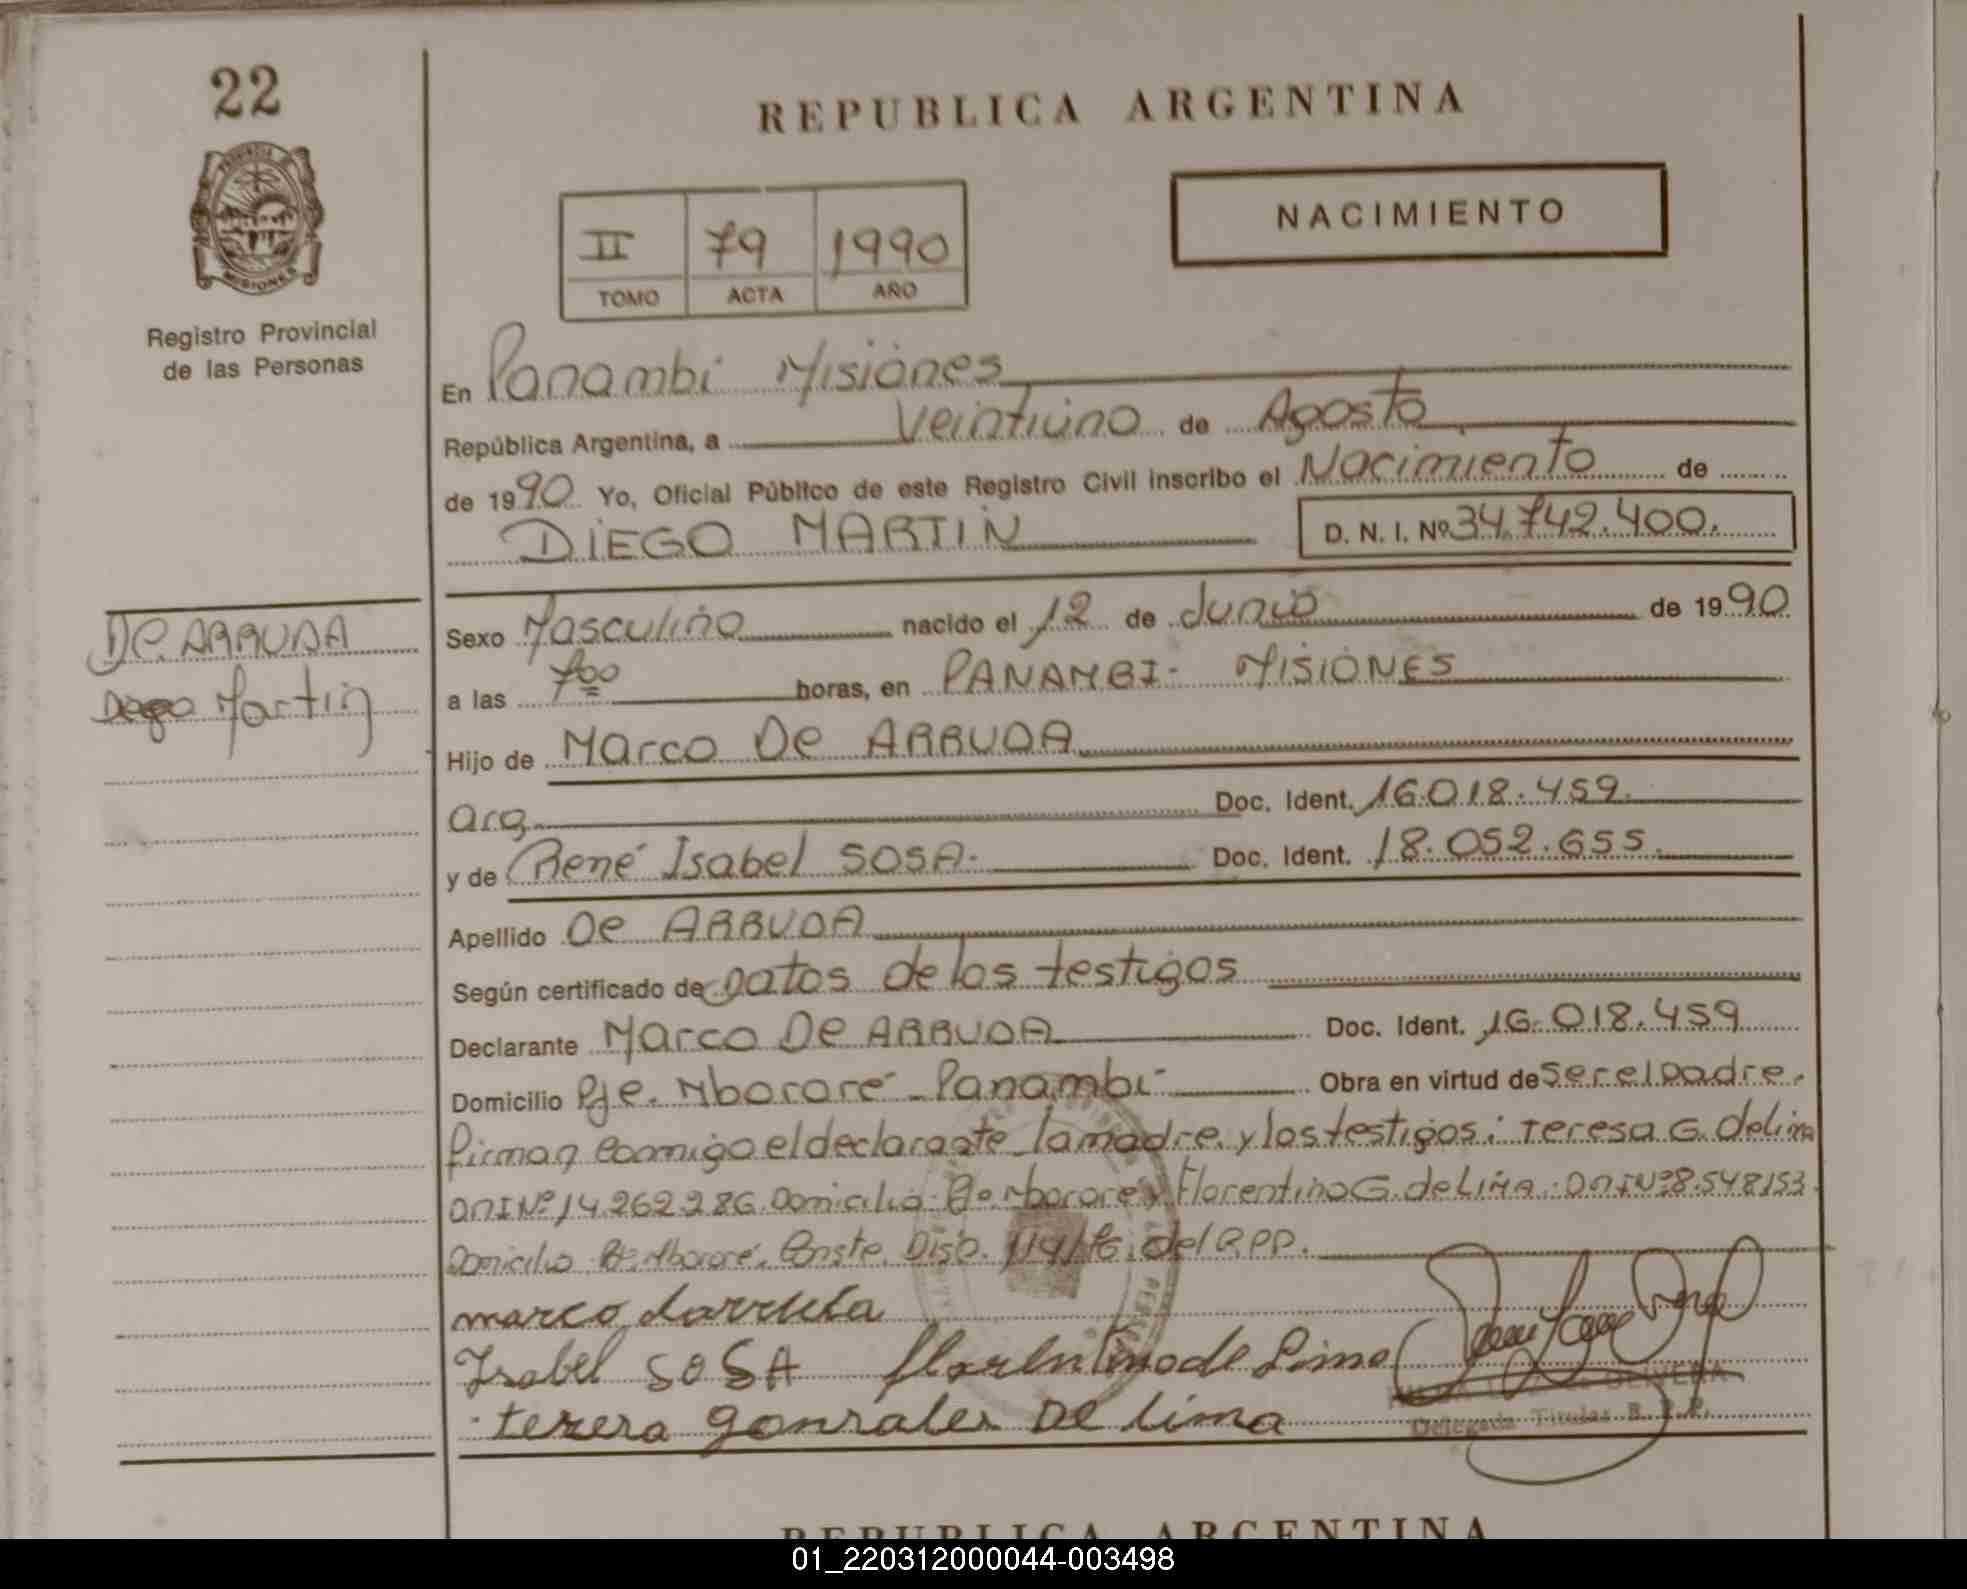 22
REPUBLICA ARGENTINA
NACIMIENTO
II 79 1990
TOMO ACTA AÑO
PROVINCIA DE
MISIONES
Registro Provincial
de las Personas
En Panambi Misiones
República Argentina, a Veintiuno de Agosto
de 1990 Yo, Oficial Público de este Registro Civil inscribo el Nacimiento de
DIEGO MARTIN D. N. I. Nº 34.742.400.
DE ARRUDA
Diego Martin
Sexo Masculino nacido el 12 de Junio de 1990
a las 7 00 horas, en PANAMBI - MISIONES
Hijo de Marco De ARRUDA
arg. Doc. Ident. 16.018.459.
y de René Isabel SOSA. Doc. Ident. 18.052.655.
Apellido De ARRUDA
Según certificado de Datos de los testigos
Declarante Marco De ARRUDA Doc. Ident. 16.018.459
Domicilio Pje. Mbororé - Panambi Obra en virtud de ser el padre.
firman conmigo el declarante la madre y los testigos: Teresa G. de lima
DNI Nº 14.262.286. Domicilio Mbororé y Florentino G. de Lima. DNI Nº 8.548153.
Domicilio Mbororé. Conste. Disp. del RPP.
marco darruda
Isabel SOSA florentino de Lima
tereza gonzales DE lima
OLIVERA
Delegada Titular R. P. P.
REPUBLICA ARGENTINA
01_220312000044-003498